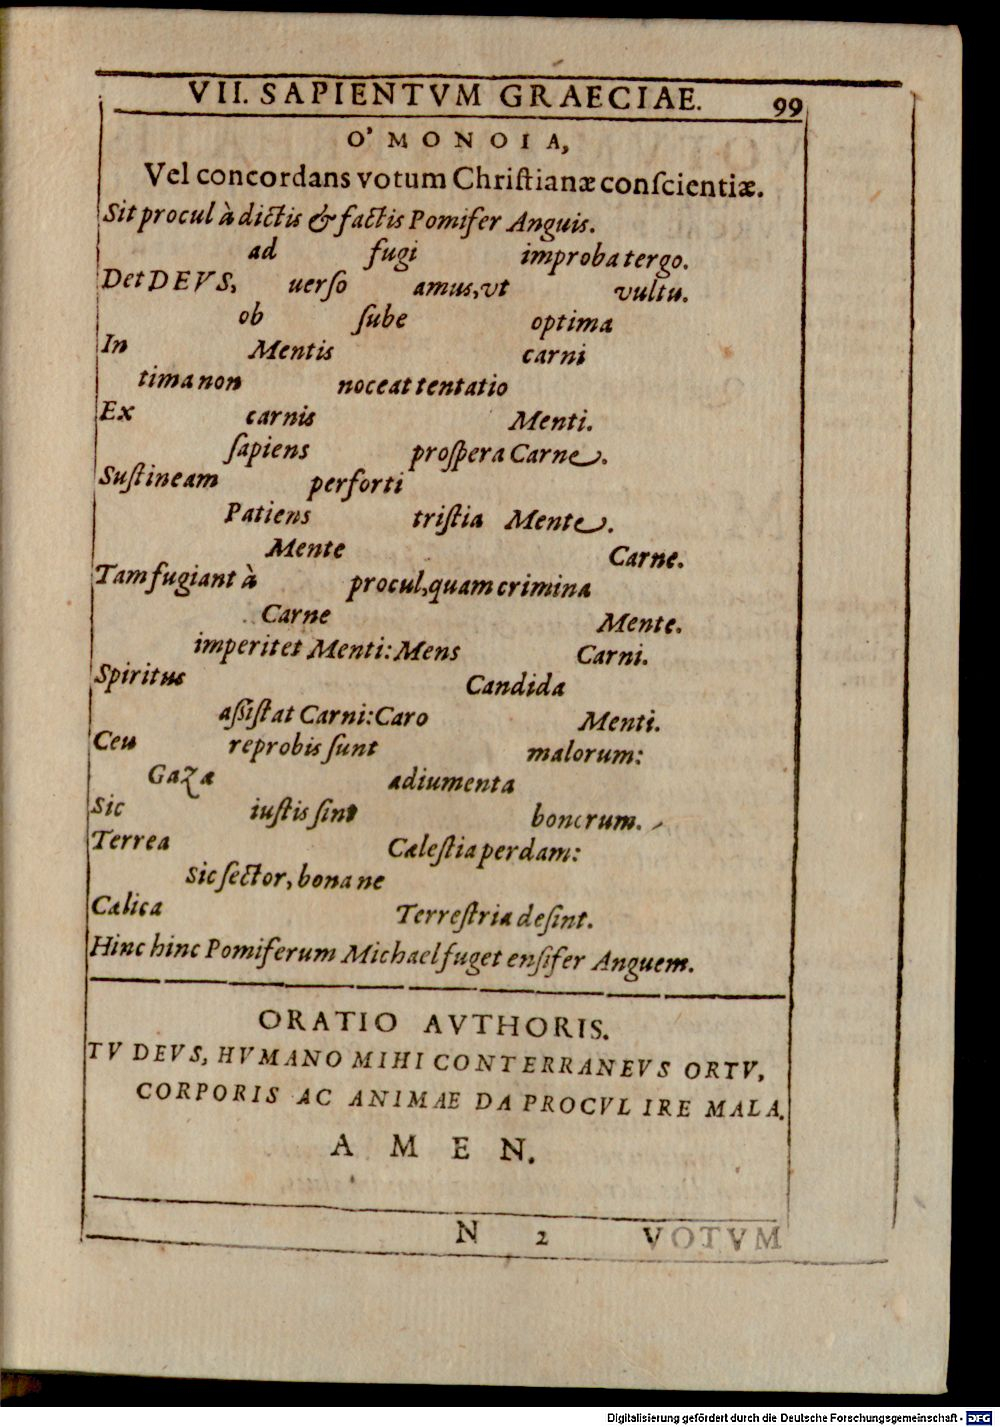 VII. SAPIENTVM GRAECIAE. 99
O' MONOIA,
Vel concordans votum Christianæ conscientiæ.
Sit procul à dictis & factis Pomifer Anguis.
ad fugi improba tergo.
Det DEVS, uerso amus, vt vultu.
ob sube optima
In Mentis carni
tima non noceat tentatio
Ex carnis Menti.
sapiens prospera Carne.
Sustineam perforti
Patiens tristia Mente.
Mente Carne.
Tam fugiant à procul, quam crimina
Carne Mente.
imperitet Menti: Mens Carni.
Spiritus Candida
assistat Carni: Caro Menti.
Ceu reprobis sunt malorum:
Gaza adiumenta
Sic iustis sint bonorum.
Terrea Cælestia perdam:
Sic sector, bona ne
Cælica Terrestria desint.
Hinc hinc Pomiferum Michael fuget ensifer Anguem.
ORATIO AVTHORIS.
TV DEVS, HVMANO MIHI CONTERRANEVS ORTV,
CORPORIS AC ANIMAE DA PROCVL IRE MALA.
AMEN.
N 2 VOTVM
Digitalisierung gefördert durch die Deutsche Forschungsgemeinschaft - DFG